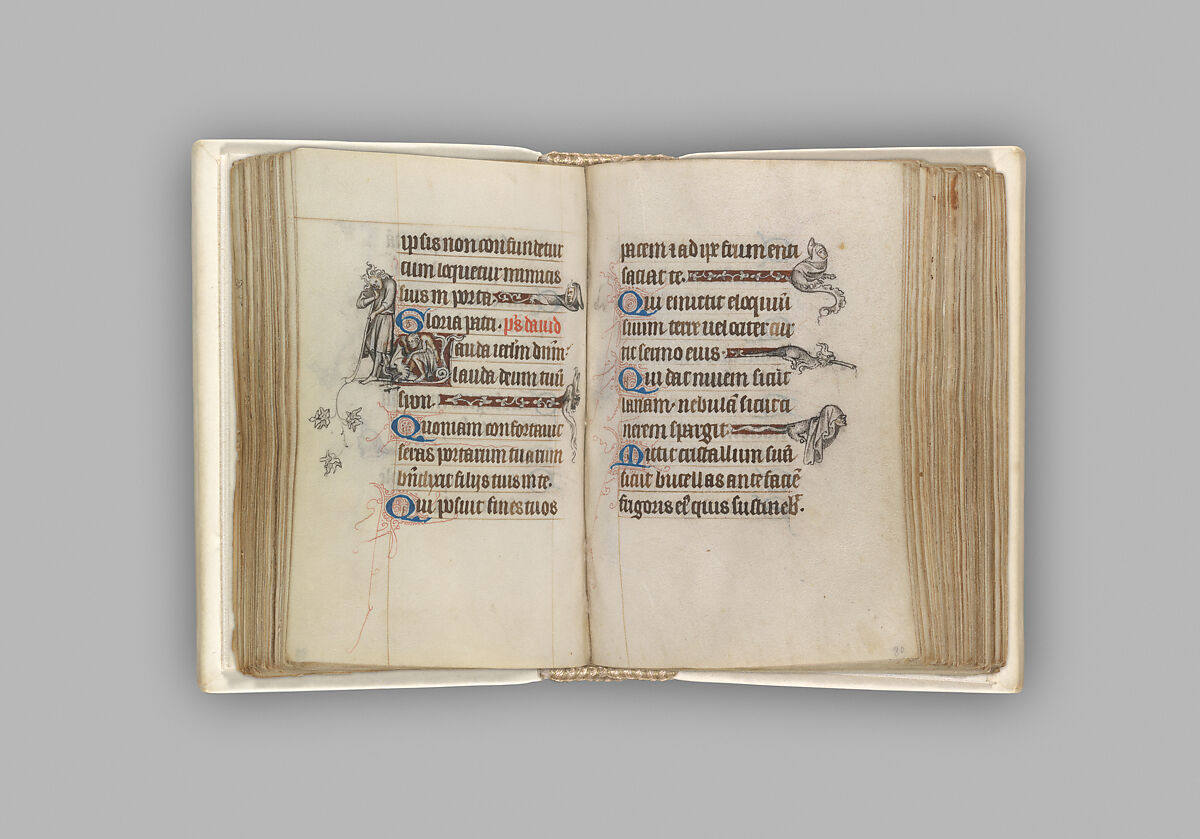 ipsis non confundetur
cum loquetur inimicis
suis in porta
Gloria patri. ps dauid
Lauda ierlm dnm
lauda deum tuū
syon.
Quoniam confortauit
seras portarum tuarum
bn̄dixit filijs tuis in te.
Qui posuit fines tuos
pacem ⁊ adipe frumenti
saciat te.
Qui emittit eloquiū
suum terre uelociter cur
rit sermo eius.
Qui dat niuem sicut
lanam. nebulā sicut ci
nerem spargit
Mittit cristallum suū
sicut bucellas ante faciē
frigoris eiꝰ quis sustineb.
90